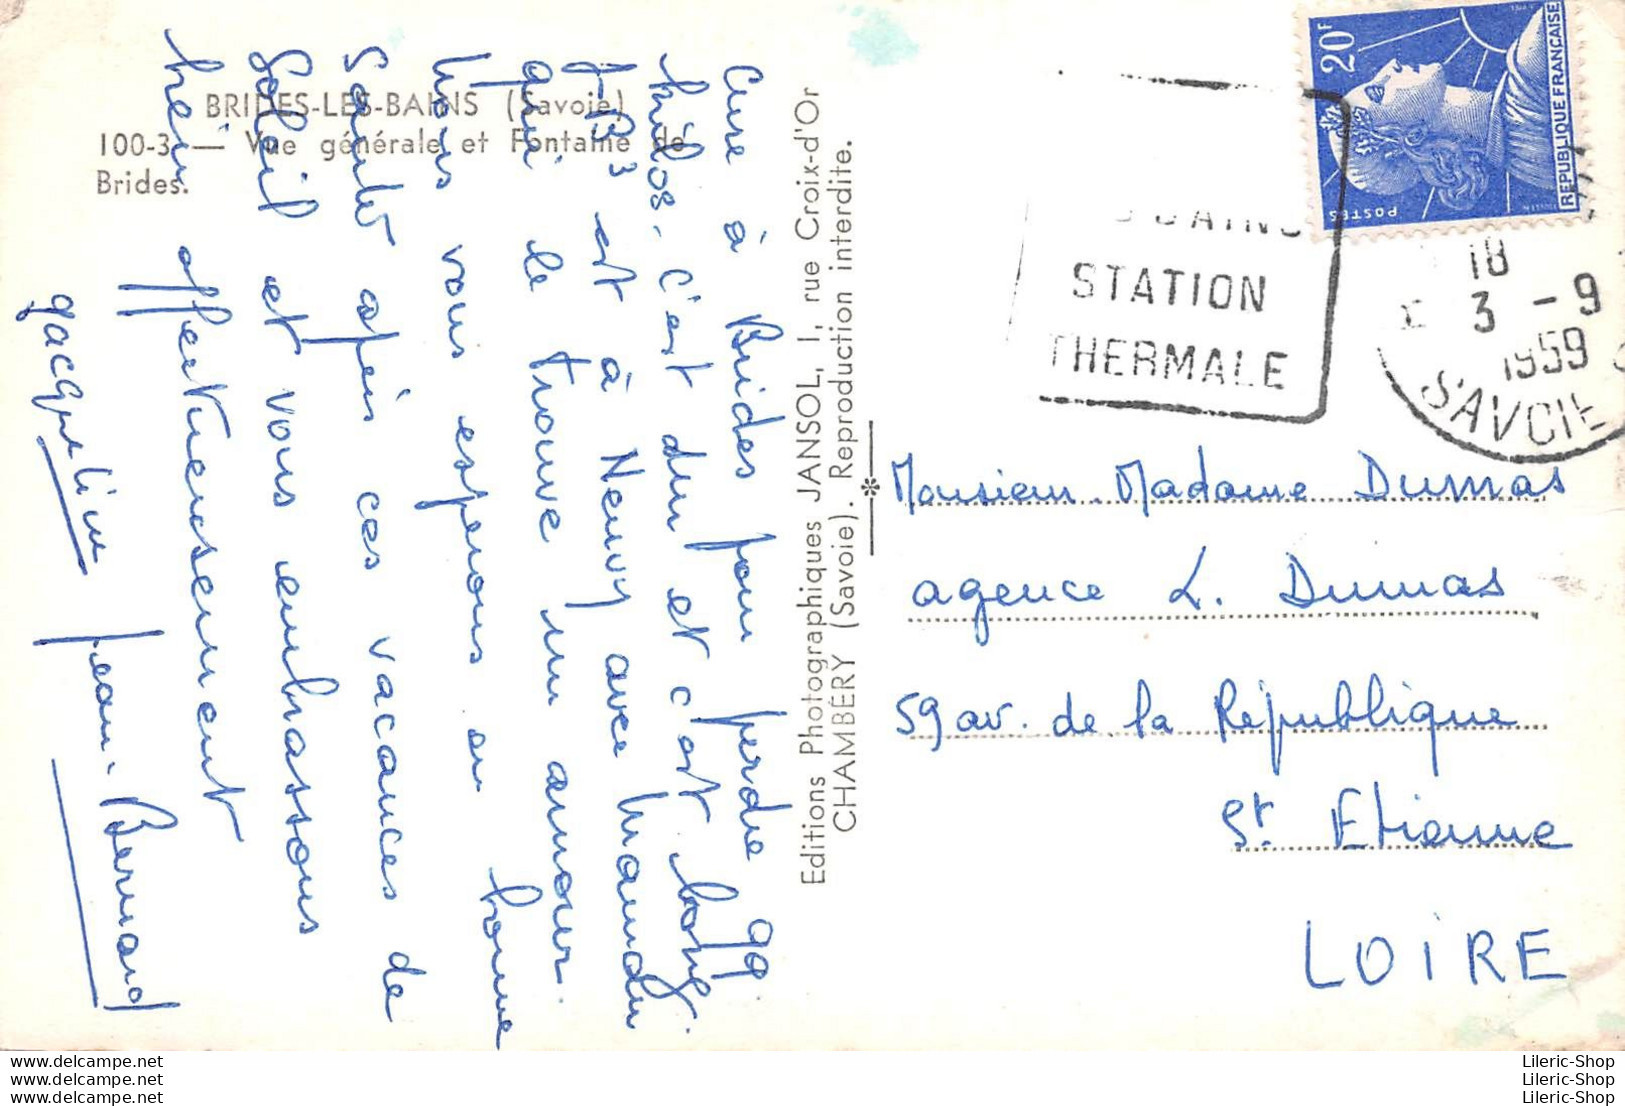 BRIDES-LES-BAINS (Savoie)
100-3. — Vue générale et Fontaine de
Brides.
Cure à Brides pour perdre 99
kilos - c'est dur et c'est long.
J.B³ est à Neuvy avec maman
qui le trouve un amour.
Nous vous espérons en bonne
santé après ces vacances de
soleil et vous embrassons
bien affectueusement
Jacqueline Jean-Bernard
Editions Photographiques JANSOL, 1, rue Croix-d'Or
CHAMBÉRY (Savoie). Reproduction interdite.
20F
POSTES
REPUBLIQUE FRANÇAISE
BAINS
STATION
THERMALE
18
3 - 9
1959
SAVOIE
Monsieur. Madame Dumas
agence L. Dumas
59 av. de la République
St. Etienne
LOIRE
www.delcampe.net
www.delcampe.net
www.delcampe.net
Lileric-Shop
Lileric-Shop
Lileric-Shop